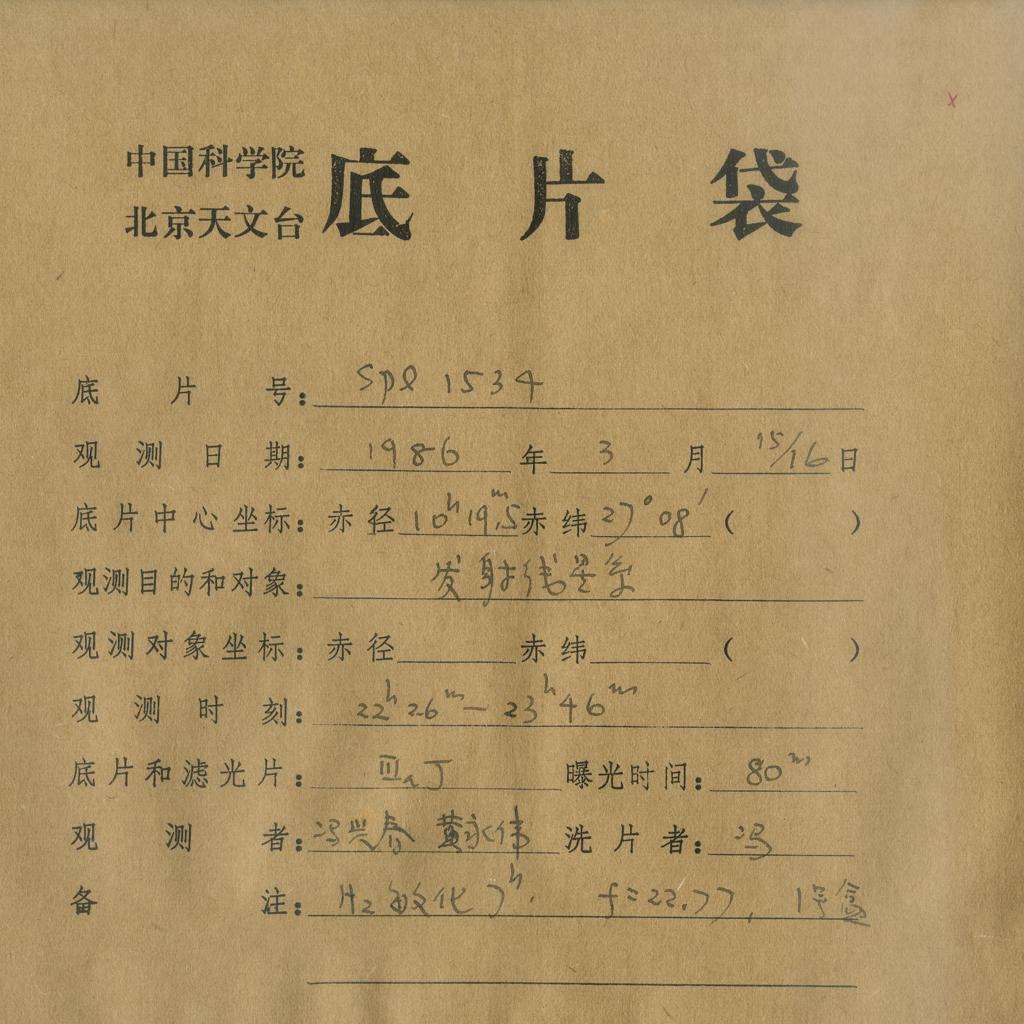 中国科学院
北京天文台
底片袋
底片号：Spl 1534
观测日期：1986年3月15/16日
底片中心坐标：赤径10ʰ19.5ᵐ赤纬27°08′（ ）
观测目的和对象：发射线星系
观测对象坐标：赤径 赤纬 （ ）
观测时刻：22ʰ26ᵐ—23ʰ46ᵐ
底片和滤光片：ⅢaJ 曝光时间：80ᵐ
观测者：冯兴春 黄永伟 洗片者：冯
备注：H₂敏化7ʰ. f=22.77, 1号盒